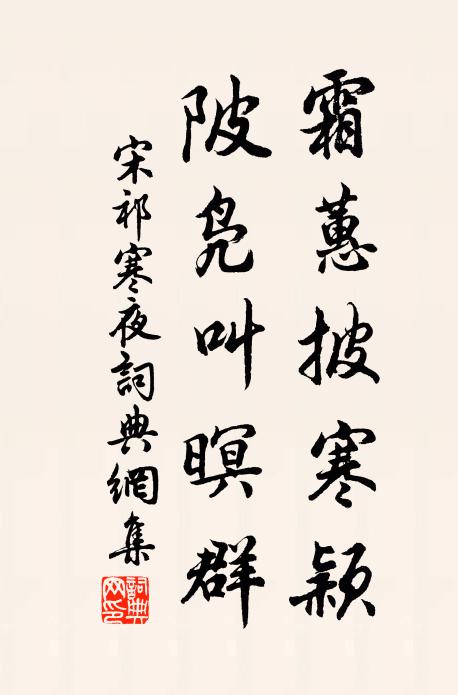 霜蕙披寒颖
陂凫叫暝群
宋祁寒夜詞典網集
詞典网印